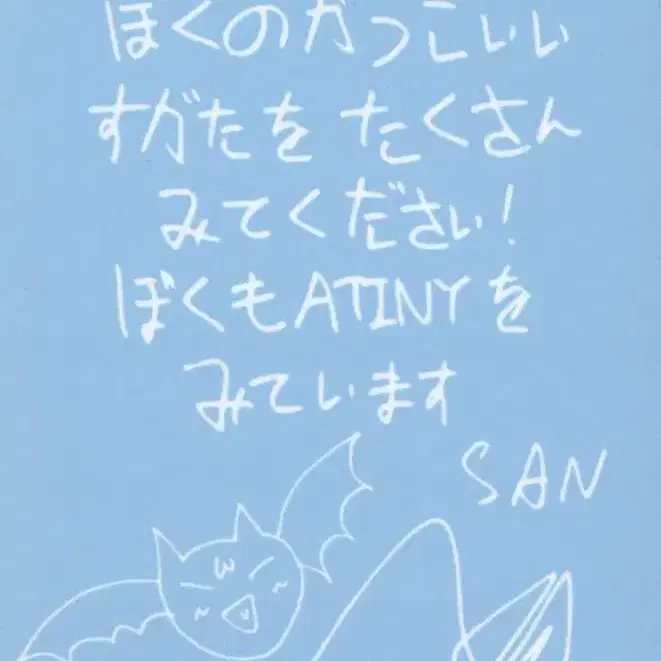 ぼくのかっこいい
すがたを たくさん
みてください!
ぼくもATINYを
みています
SAN